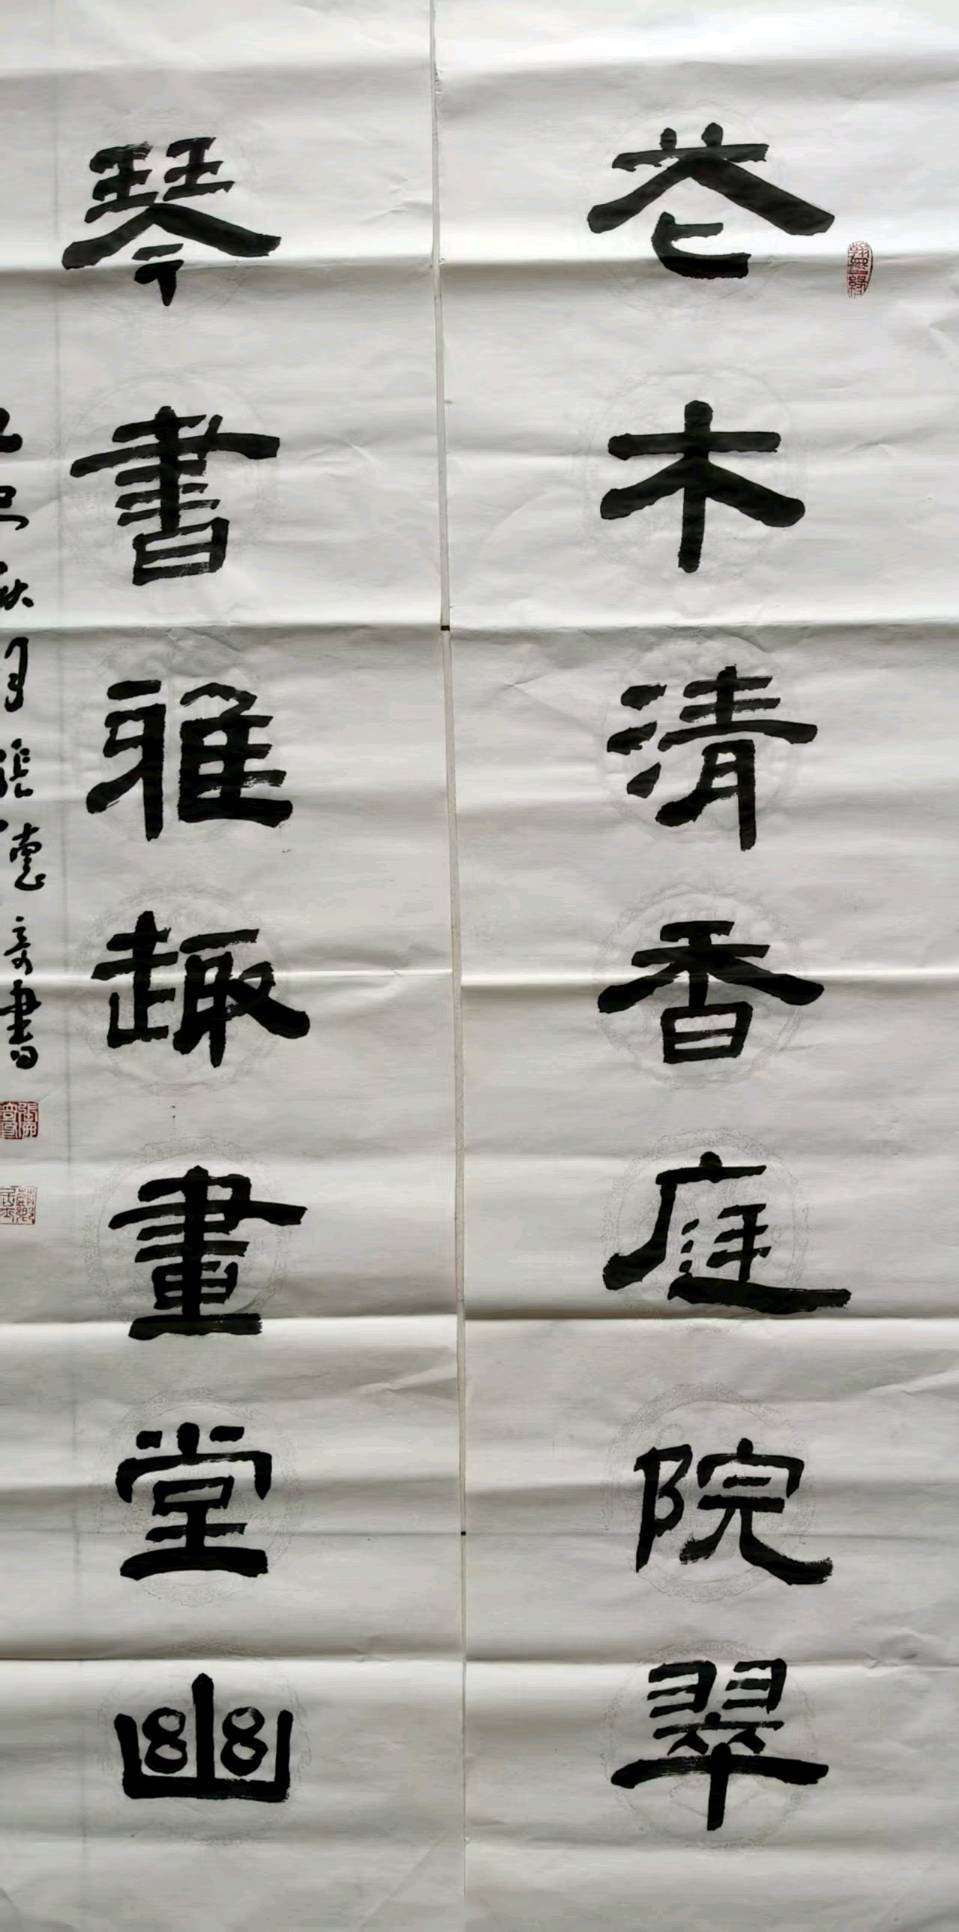 花木清香庭院翠
琴書雅趣畫堂幽
秋月張憲奇書